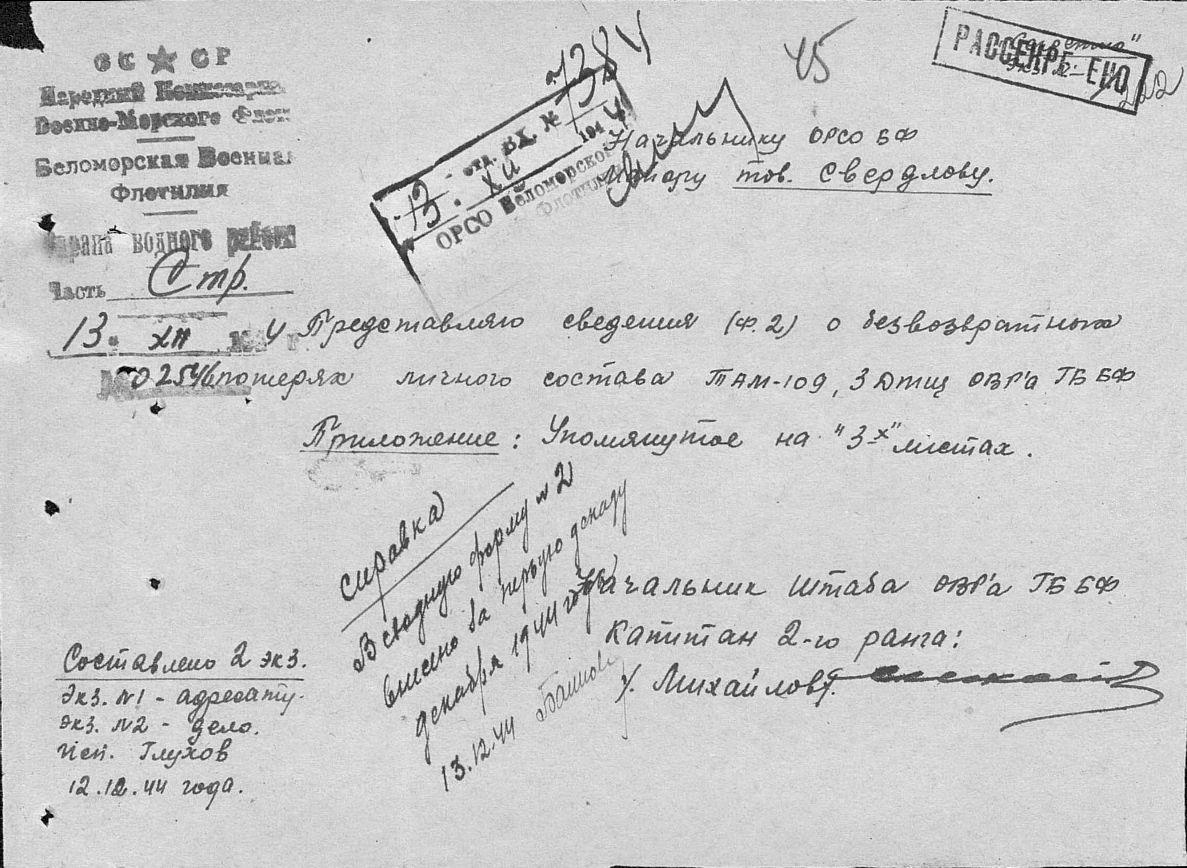 СС СР
Народный Комиссариат
Военно-Морского Флота
Беломорская Военная
Флотилия
Охрана водного района
Часть Стр.
13. XII 1944 г.
№ 02546
отд. ВХ. № 7384
13. XII 1944
ОРСО Беломорской
Флотилии
45
РАССЕКРЕЧЕНО
Экз. №
222
Начальнику ОРСО БФ
Майору тов. Свердлову.
Представляю сведения (ф.2) о безвозвратных
потерях личного состава ТАМ-109, 3 Дтщ ОВР'а ГБ БФ
Приложение: Упомянутое на "3-х" листах.
Справка
В сводную форму № 2
внесено за первую декаду
декабря 1944 года
13.12.44
Начальник штаба ОВР'а ГБ БФ
Капитан 2-го ранга:
/. Михайлов/.
Составлено 2 экз.
Экз. №1 - адресату.
Экз. №2 - дело.
Исп. Глухов
12.12.44 года.